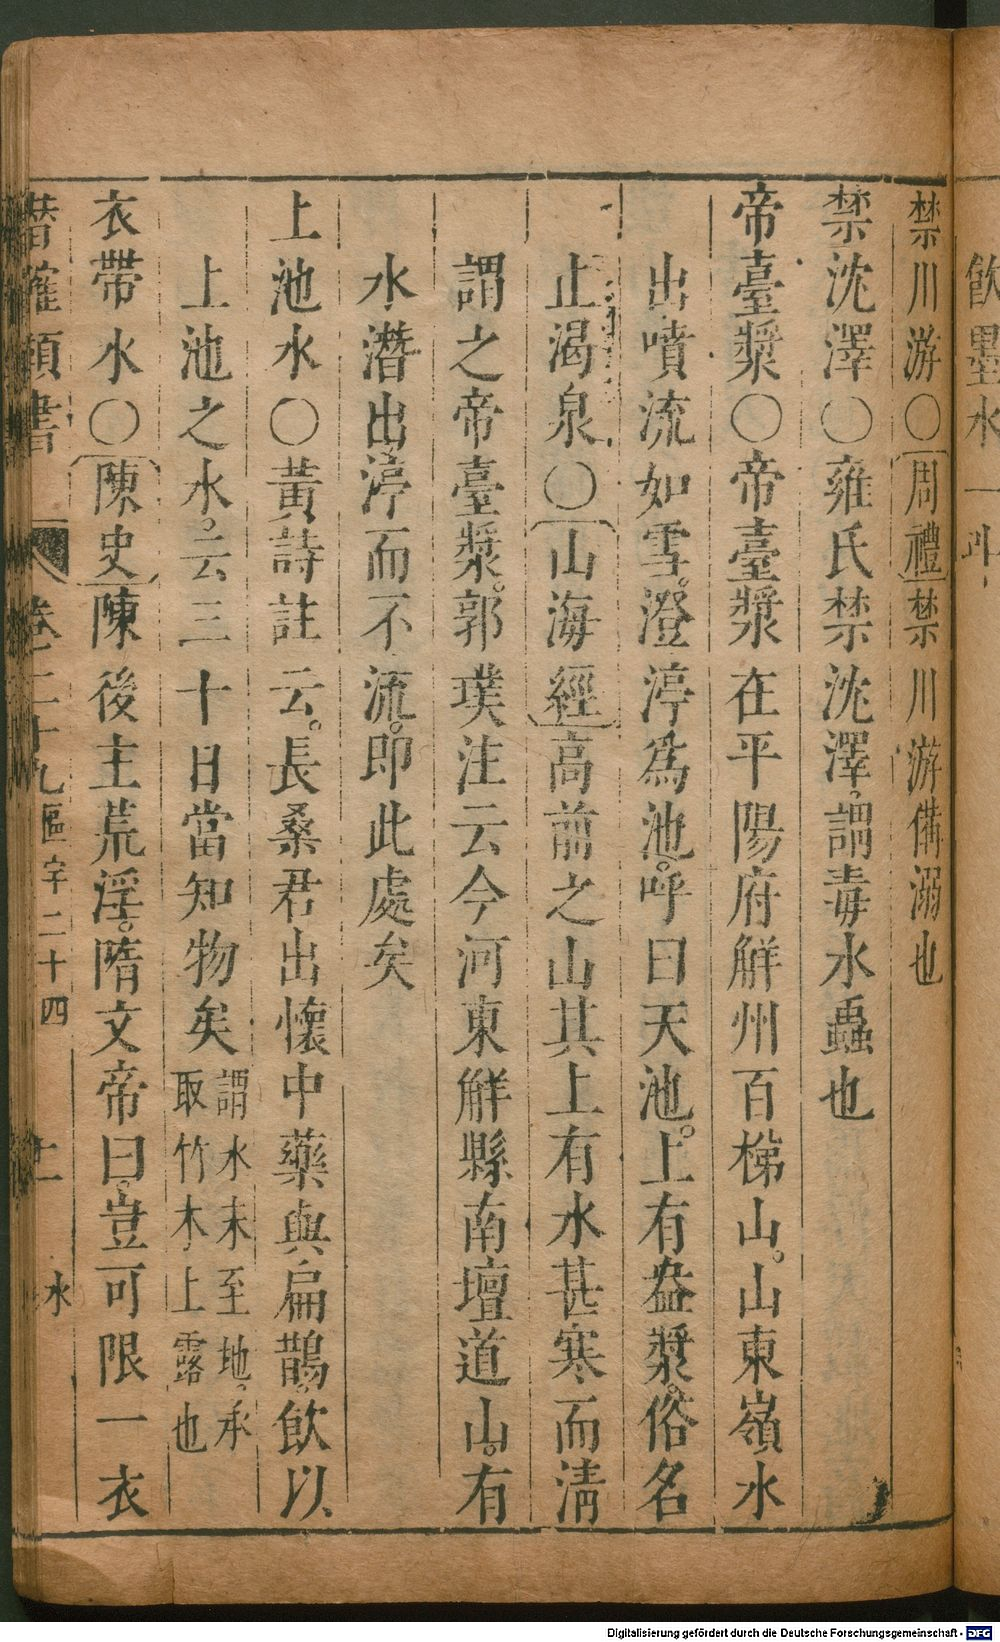 飲墨水一斗
禁川游〇周禮禁川游備溺也
禁沈澤〇雍氏禁沈澤謂毒水蟲也
帝臺漿〇帝臺漿在平陽府解州百梯山。山東嶺水
出噴流如雪。澄渟為池。呼曰天池。上有盎漿。俗名
止渴泉〇山海經高前之山其上有水甚寒而淸
謂之帝臺漿。郭璞注云今河東解縣南壇道山。有
水潛出渟而不流。即此處矣
上池水〇黃詩註云。長桑君出懷中藥與扁鵲。飲以
上池之水。云三十日當知物矣
謂水未至地。承
取竹木上露也
衣帶水〇陳史陳後主荒淫。隋文帝曰。豈可限一衣
潛確類書 卷二十九區宇二十四 水
Digitalisierung gefördert durch die Deutsche Forschungsgemeinschaft - DFG